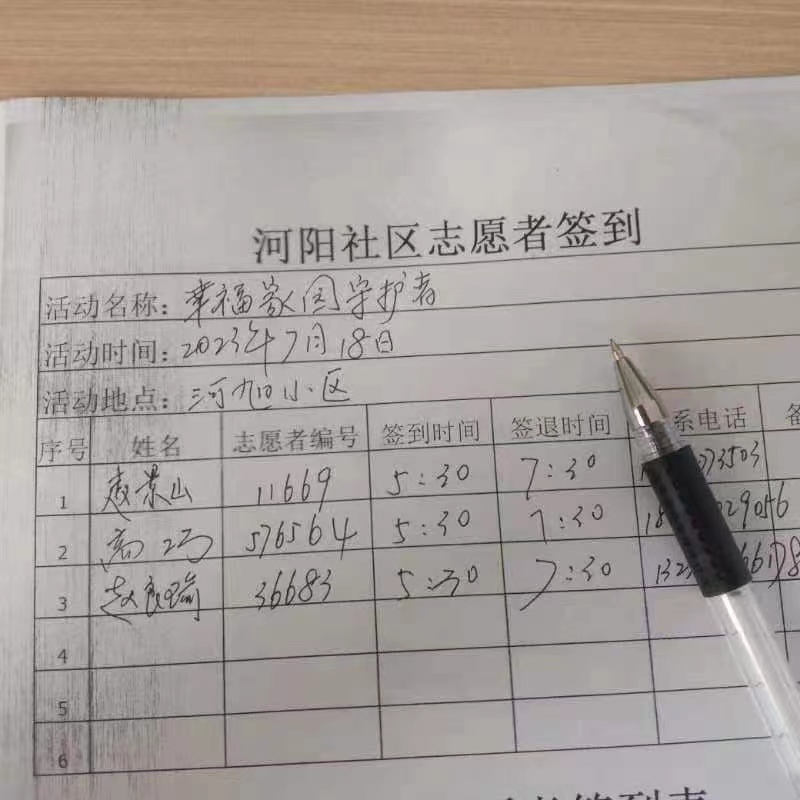 河阳社区志愿者签到
活动名称：幸福家园守护者
活动时间：2023年7月18日
活动地点：河旭小区
序号 姓名 志愿者编号 签到时间 签退时间 系电话
1 景山 11669 5:30 7:30 73503
2 高 576564 5:30 7:30 18 29056
3 赵良瑜 36683 5:30 7:30 132
4
5
6